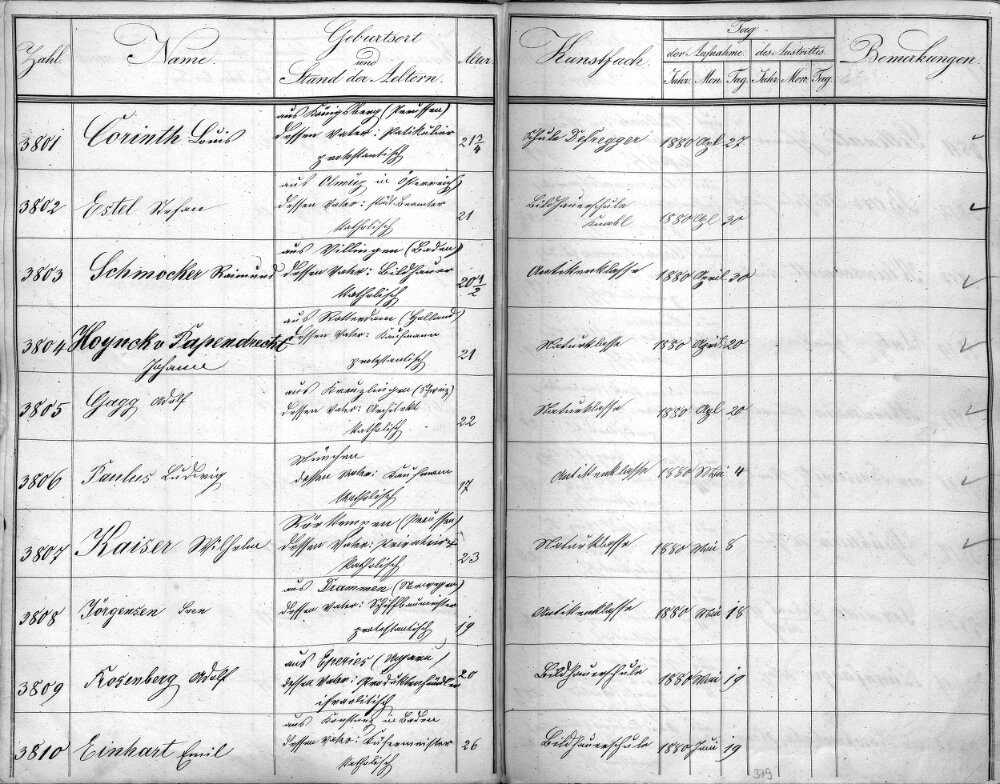 Zahl. Name. Geburtsort und Stand der Aeltern. Alter Kunstfach. Tag der Aufnahme. des Austrittes. Bemerkungen.
Jahr Mon. Tag. Jahr. Mon. Tag
aus Königsberg (Preussen)
3801 Corinth Louis dessen Vater: Partikulier 21 3/4 Schule Defregger 1880 Apl 27
protestantisch
aus Olmütz in Österreich
3802 Estel Stefan dessen Vater: Beamter 21 Bildhauerschule 1880 Apl 30
katholisch Knabl
aus Villingen (Baden)
3803 Schmocker Raimund dessen Vater: Bildhauer 20 1/2 Antikenklasse 1880 April 30
katholisch
aus Rotterdam (Holland)
3804 Hoynck v. Papendrecht dessen Vater: Kaufmann 21 Naturklasse 1880 April 20
Johann protestantisch
aus Kreuzlingen (Schweiz)
3805 Gagg Adolf dessen Vater: Architekt 22 Naturklasse 1880 Apl 20
katholisch
München
3806 Paulus Ludwig dessen Vater: Kaufmann 17 Antikenklasse 1880 Mai 4
katholisch
(Preussen)
3807 Kaiser Wilhelm dessen Vater: Privatier 23 Naturklasse 1880 Mai 8
katholisch
aus Drammen (Norwegen)
3808 Jörgensen Sven dessen Vater: Schiffbaumeister 19 Antikenklasse 1880 Mai 18
protestantisch
aus Eperies (Ungarn)
3809 Rosenberg Adolf dessen Vater: Produktenhändler 20 Bildhauerschule 1880 Mai 19
israelitisch
aus Konstanz in Baden
3810 Einhart Emil dessen Vater: Küfermeister 26 Bildhauerschule 1880 Juni 19
katholisch
379